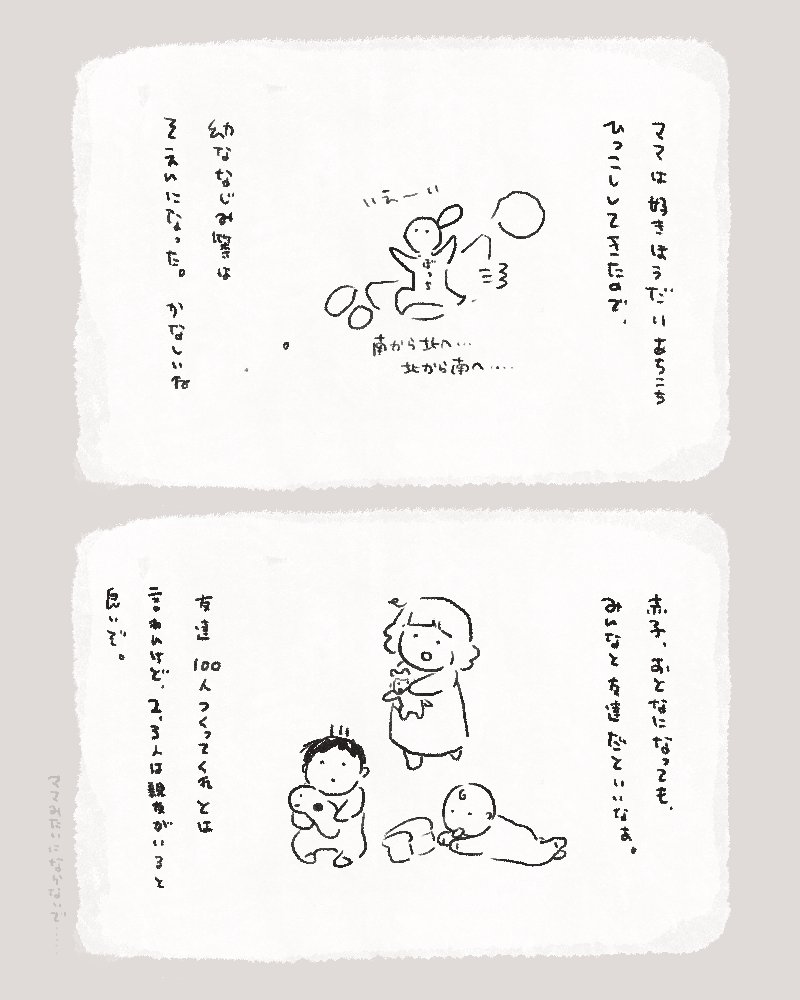 ママは好きほうだいあちこち
ひっこししてきたので、
いえーい
ぼっち
南から北へ…
北から南へ‥‥
幼ななじみ等は
そえんになった。かなしいな
赤子、おとなになっても、
みんなと友達だといいなぁ。
友達100人つくってくれとは
言わんけど、2,3人は親友がいると
良いぞ。